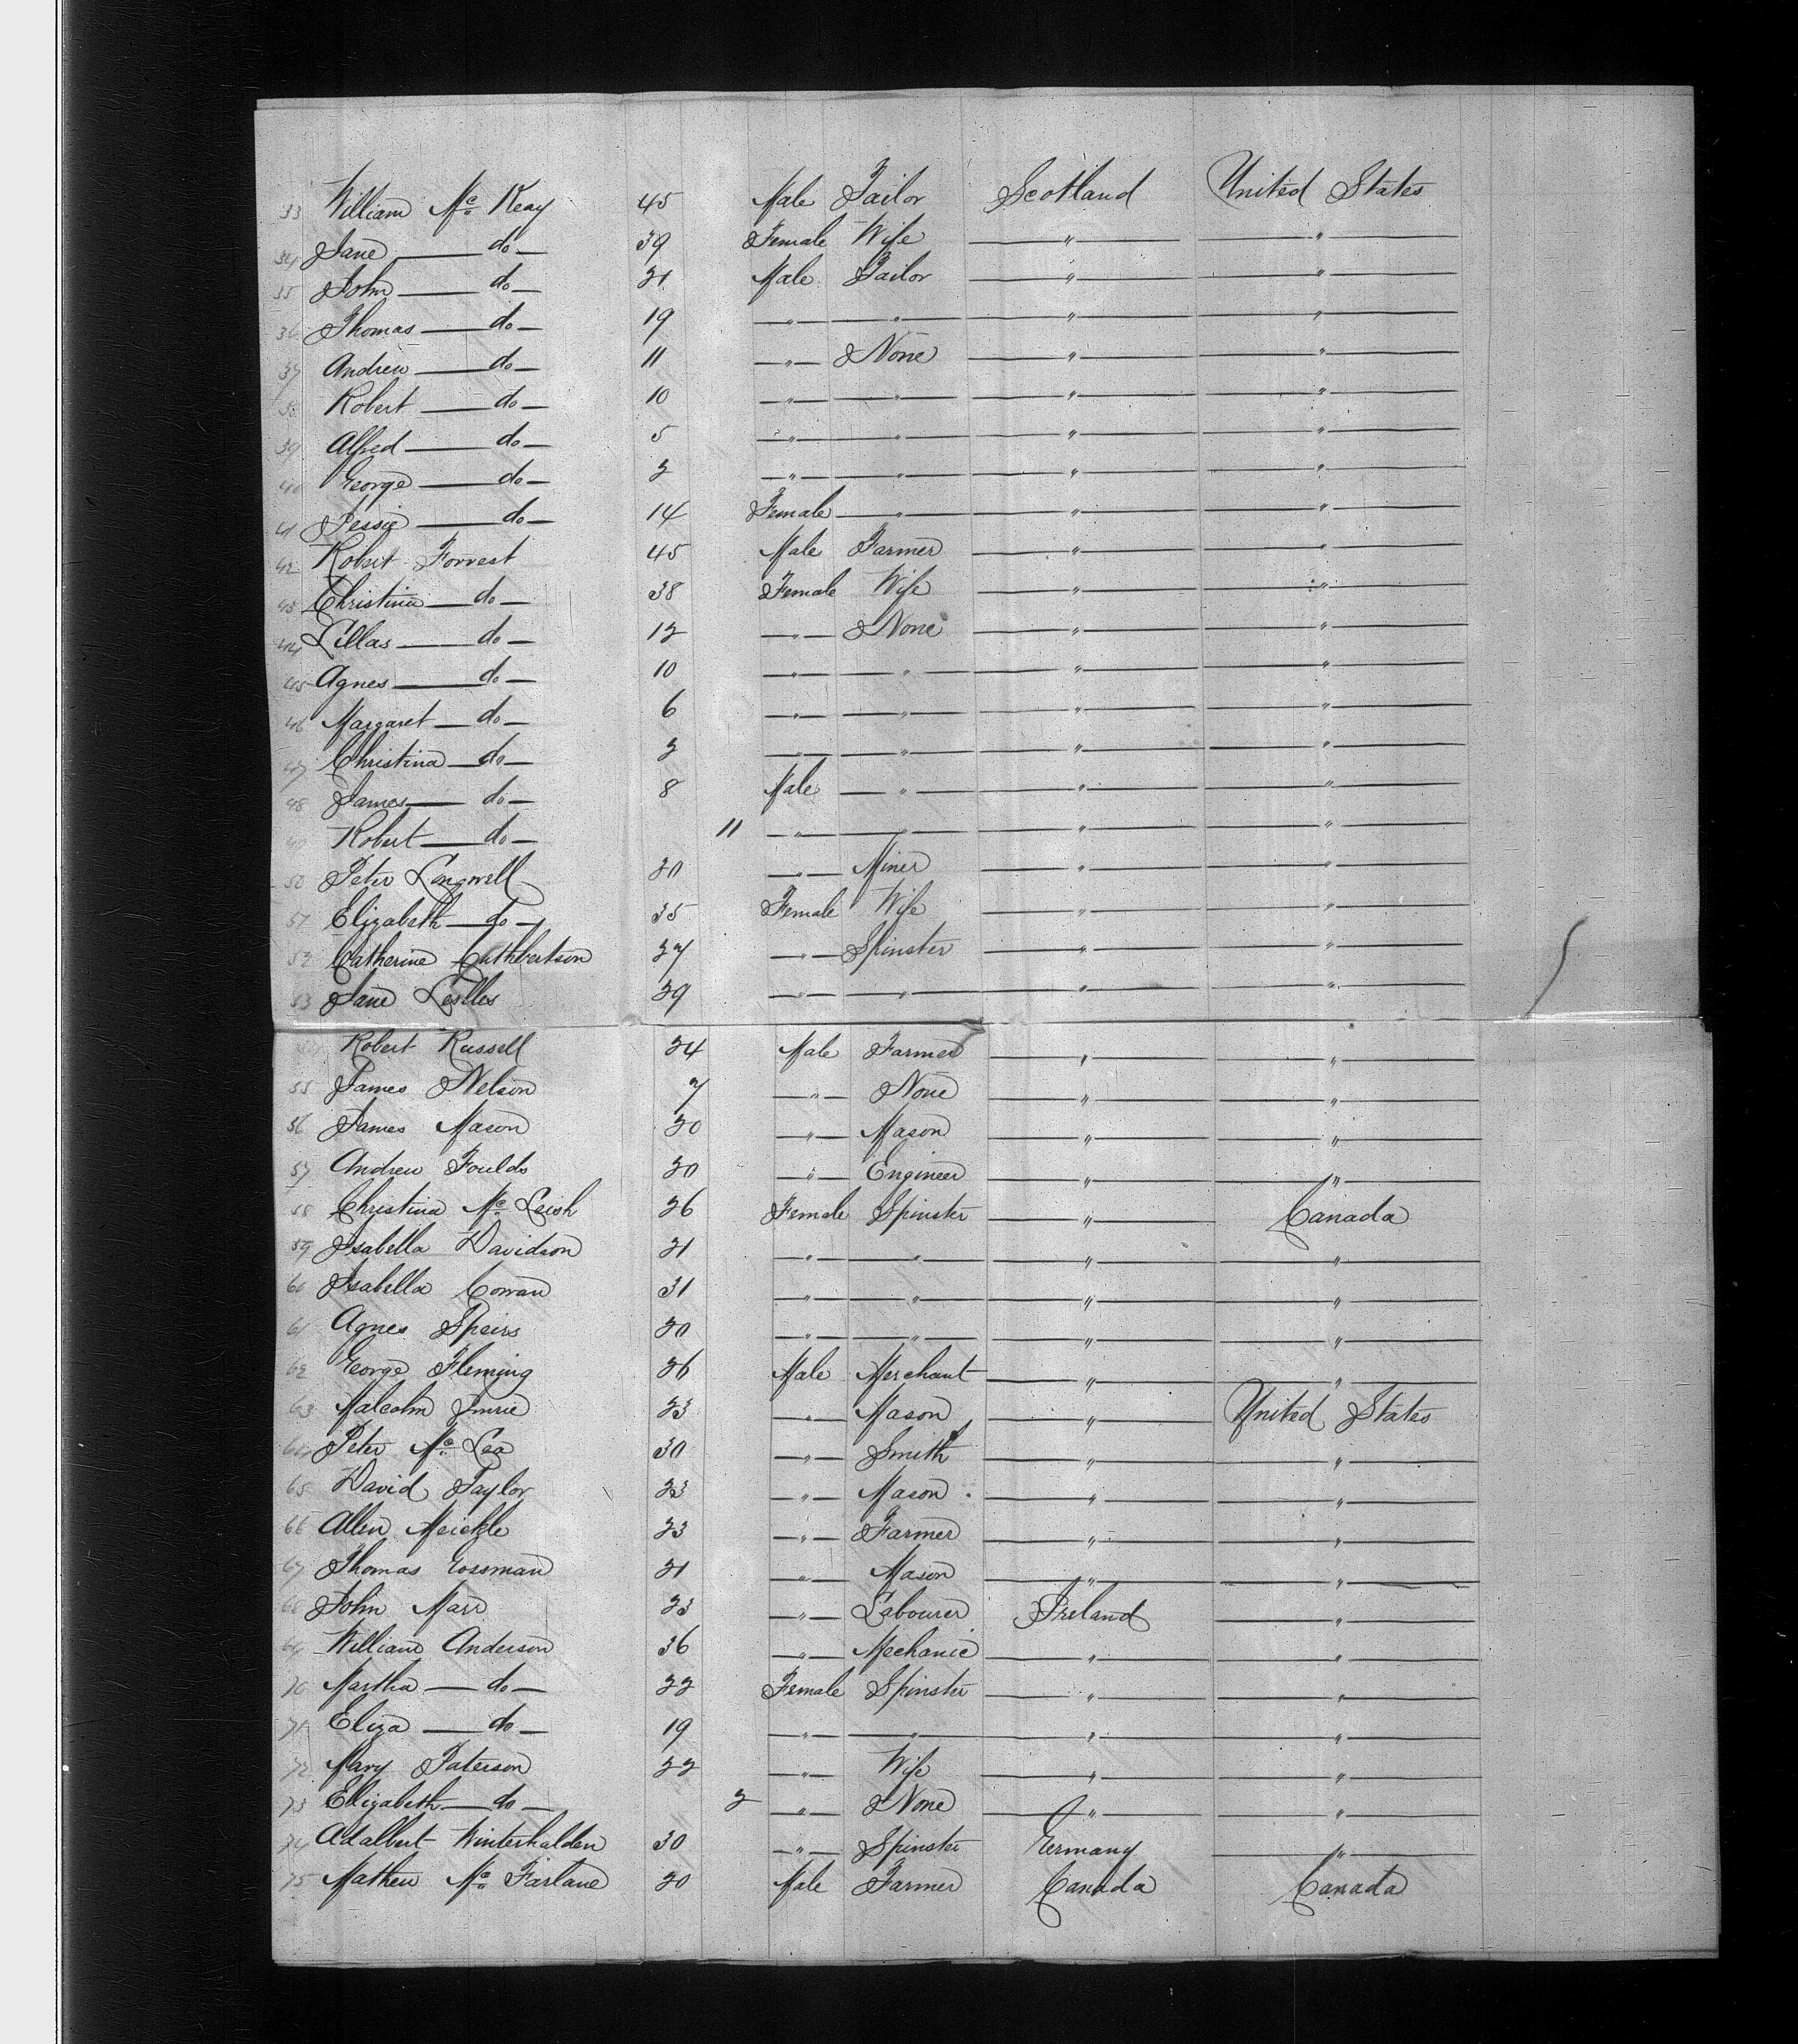 33 William Mc Keay 45 Male Tailor Scotland United States
34 Jane — do — 39 Female Wife — " — — " —
35 John — do — 21 Male Tailor — " — — " —
36 Thomas — do — 19 — " — — " — — " — — " —
37 Andrew — do — 11 — " — None — " — — " —
38 Robert — do — 10 — " — — " — — " — — " —
39 Alfred — do — 5 — " — — " — — " — — " —
40 George — do — 2 — " — — " — — " — — " —
41 Jessie — do — 14 Female — " — — " — — " —
42 Robert Forrest 45 Male Farmer — " — — " —
43 Christina — do — 38 Female Wife — " — — " —
44 Lillas — do — 12 — " — None — " — — " —
45 Agnes — do — 10 — " — — " — — " — — " —
46 Margaret — do — 6 — " — — " — — " — — " —
47 Christina — do — 2 — " — — " — — " — — " —
48 James — do — 8 Male — " — — " — — " —
49 Robert — do — 11 — " — — " — — " — — " —
50 Peter Langwell 20 — " — Miner — " — — " —
51 Elizabeth — do — 35 Female Wife — " — — " —
52 Catherine Cuthbertson 27 — " — Spinster — " — — " —
53 Jane 29 — " — — " — — " — — " —
Robert Russell 24 Male Farmer — " — — " —
55 James Nelson 7 — " — None — " — — " —
56 James Mason 20 — " — Mason — " — — " —
57 Andrew Foulds 20 — " — Engineer — " — — " —
58 Christina Mc Leish 26 Female Spinster — " — Canada
59 Isabella Davidson 21 — " — — " — — " — — " —
60 Isabella Cowan 31 — " — — " — — " — — " —
61 Agnes Speirs 20 — " — — " — — " — — " —
62 George Fleming 26 Male Merchant — " — — " —
63 Malcolm Imrie 23 — " — Mason — " — United States
64 Peter Mc Lea 30 — " — Smith — " — — " —
65 David Taylor 23 — " — Mason — " — — " —
66 Allen Meickle 23 — " — Farmer — " — — " —
67 Thomas Gossman 21 — " — Mason — " — — " —
68 John Marr 23 — " — Labourer Ireland — " —
69 William Anderson 36 — " — Mechanic — " — — " —
70 Martha — do — 22 Female Spinster — " — — " —
71 Eliza — do — 19 — " — — " — — " — — " —
72 Mary Paterson 22 — " — Wife — " — — " —
73 Elizabeth — do — 2 — " — None — " — — " —
74 Adalbert Winterhalden 30 — " — Spinster Germany — " —
75 Mathew Mc Farlane 20 Male Farmer Canada Canada